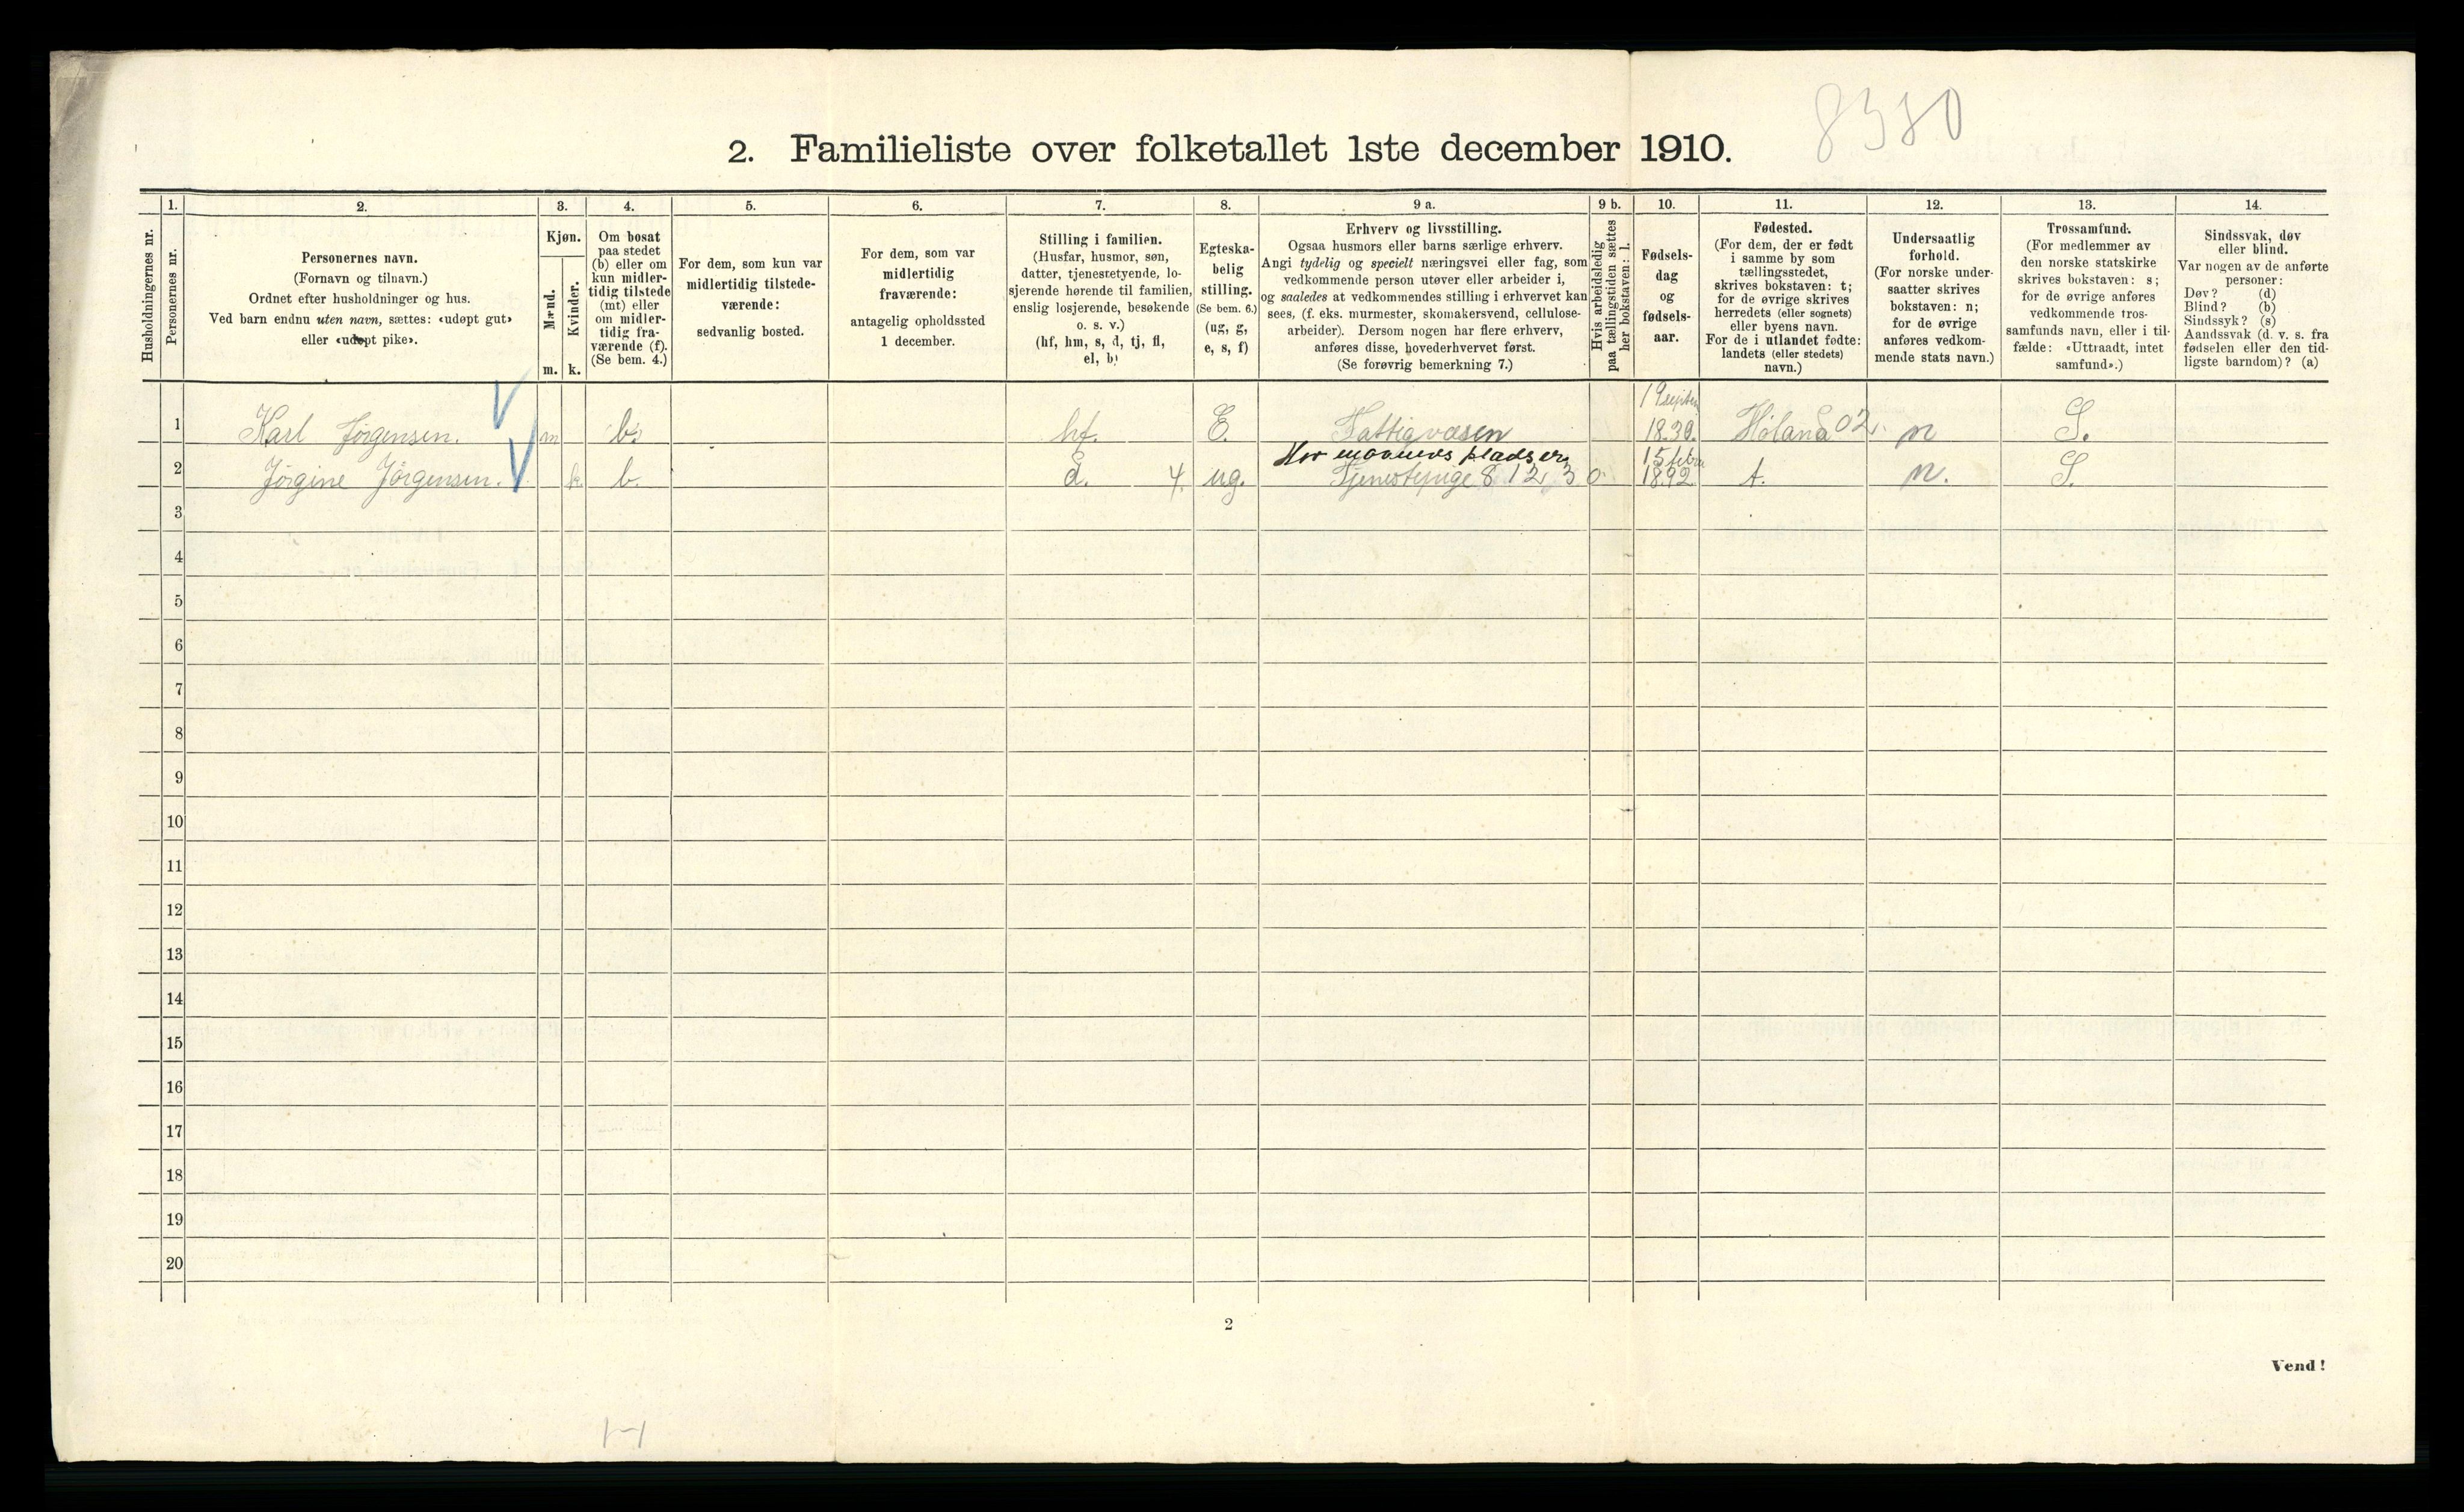 8380
2. Familieliste over folketallet 1ste december 1910.
Husholdningernes nr.
1.
Personernes nr.
2.
Personernes navn.
(Fornavn og tilnavn.)
Ordnet efter husholdninger og hus.
Ved barn endnu uten navn, sættes: «udøpt gut»
eller «udøpt pike».
3.
Kjøn.
Mænd.
Kvinder.
m.
k.
4.
Om bosat
paa stedet
(b) eller om
kun midler-
tidig tilstede
(mt) eller
om midler-
tidig fra-
værende (f).
(Se bem. 4.)
5.
For dem, som kun var
midlertidig tilstede-
værende:
sedvanlig bosted.
6.
For dem, som var
midlertidig
fraværende:
antagelig opholdssted
1 december.
7.
Stilling i familien.
(Husfar, husmor, søn,
datter, tjenestetyende, lo-
sjerende hørende til familien,
enslig losjerende, besøkende
o. s. v.)
(hf, hm, s, d, tj, fl,
el, b)
8.
Egteska-
belig
stilling.
(Se bem. 6.)
(ug, g,
e, s, f)
9 a.
Erhverv og livsstilling.
Ogsaa husmors eller barns særlige erhverv.
Angi tydelig og specielt næringsvei eller fag, som
vedkommende person utøver eller arbeider i,
og saaledes at vedkommendes stilling i erhvervet kan
sees, (f. eks. murmester, skomakersvend, cellulose-
arbeider). Dersom nogen har flere erhverv,
anføres disse, hovederhvervet først.
(Se forøvrig bemerkning 7.)
9 b.
Hvis arbeidsledig
paa tællingstiden sættes
her bokstaven: l.
10.
Fødsels-
dag
og
fødsels-
aar.
11.
Fødested.
(For dem, der er født
i samme by som
tællingsstedet,
skrives bokstaven: t;
for de øvrige skrives
herredets (eller sognets)
eller byens navn.
For de i utlandet fødte:
landets (eller stedets)
navn.)
12.
Undersaatlig
forhold.
(For norske under-
saatter skrives
bokstaven: n;
for de øvrige
anføres vedkom-
mende stats navn.)
13.
Trossamfund.
(For medlemmer av
den norske statskirke
skrives bokstaven: s;
for de øvrige anføres
vedkommende tros-
samfunds navn, eller i til-
fælde: «Uttraadt, intet
samfund».)
14.
Sindssvak, døv
eller blind.
Var nogen av de anførte
personer:
Døv? (d)
Blind? (b)
Sindssyk? (s)
Aandssvak (d. v. s. fra
fødselen eller den tid-
ligste barndom)? (a)
1 Karl Jørgensen. m b. hf. E. Fattigvæsen 19 septem 1839. Høland 02. n S.
2 Jørgine Jørgensen. k b. d. 4. ug. Har pladsen Tjenestepige 8 12 3 0. 15 febr 1892 t. n. S.
3
4
5
6
7
8
9
10
11
12
13
14
15
16
17
18
19
20
2
Vend!
1-1